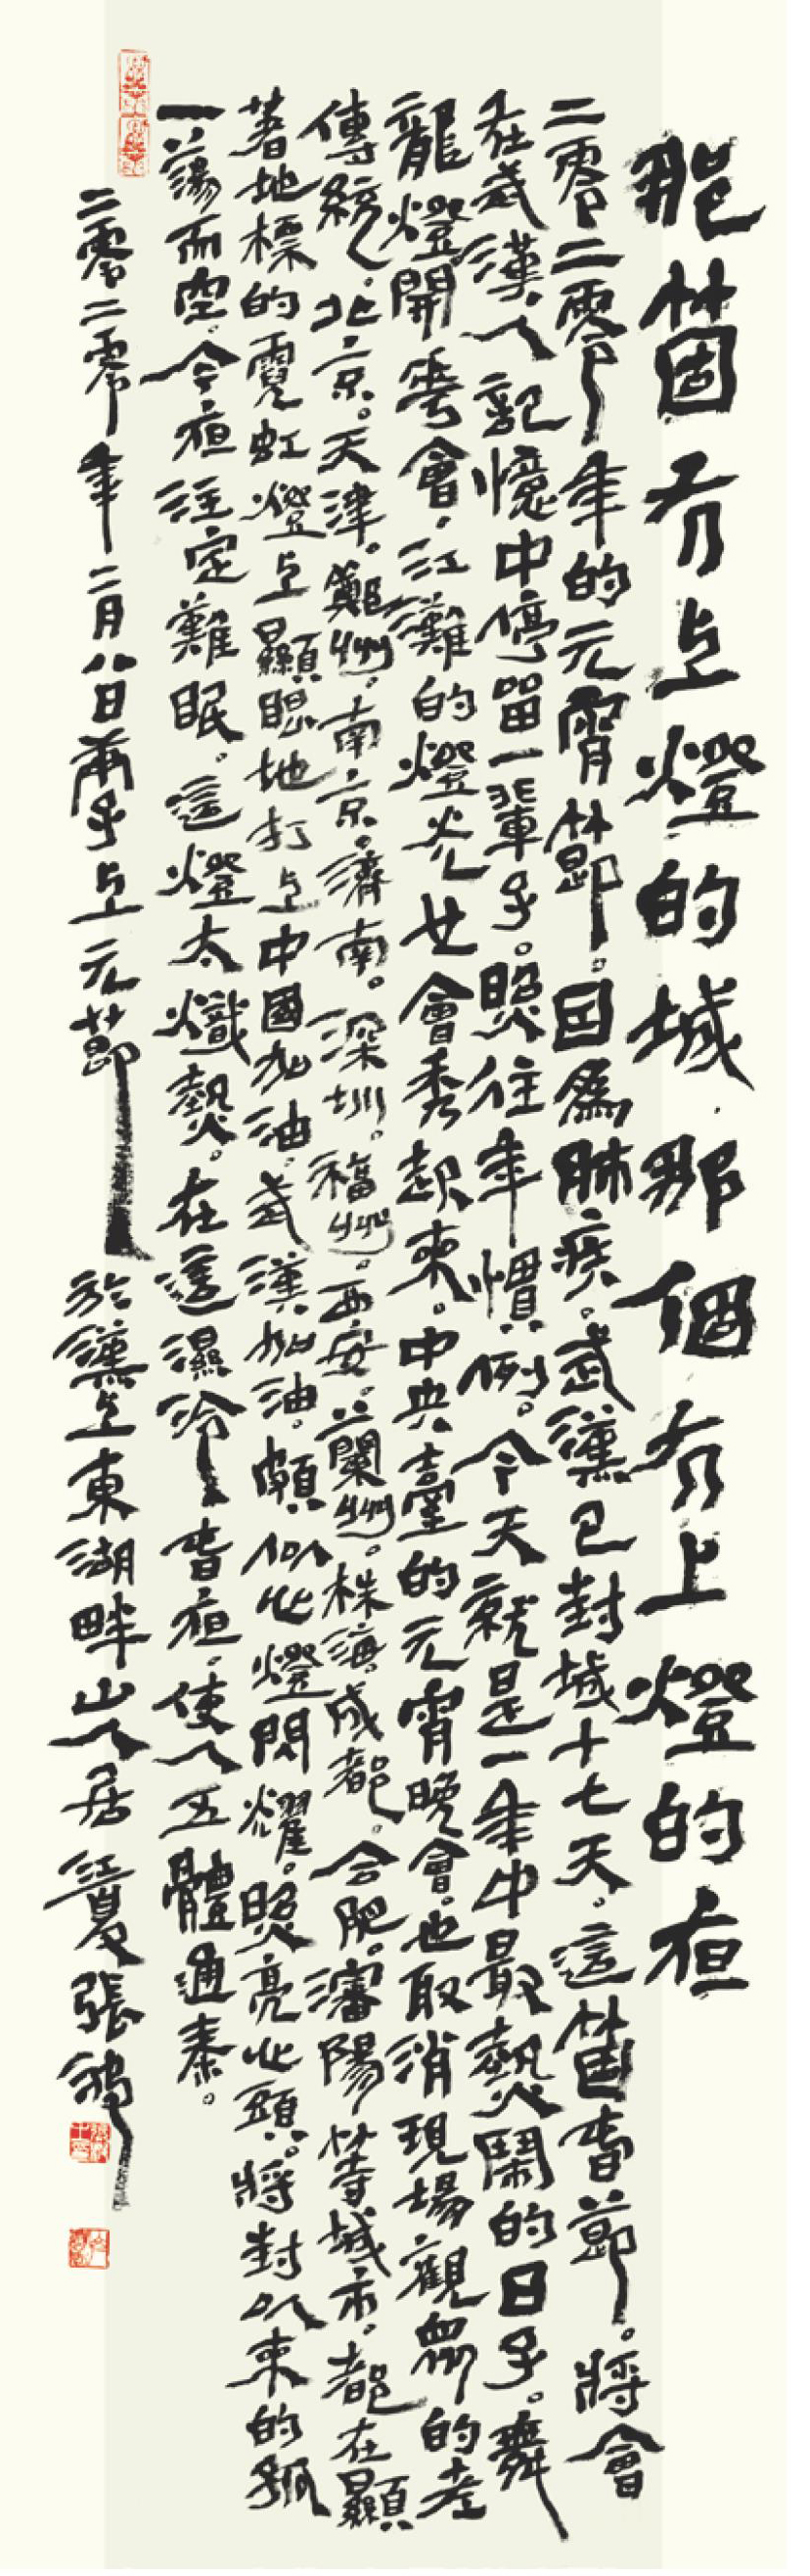 那箇有上燈的城那個有上燈的夜
二零二零年的元宵節。因為肺疾。武漢已封城十七天。這箇春節。將會
在武漢人記憶中停留一輩子。照往年慣例。今天就是一年中最熱鬧的日子。舞
龍燈開花會。江灘的燈光也會秀起來。中央臺的元宵晚會。也取消現場觀眾的老
傳統。北京。天津。鄭州。南京。濟南。深圳。福州。西安。蘭州。株海。成都。合肥。瀋陽等城市。都在顯
著地標的霓虹燈上顯眼地打上中國加油。武漢加油。頗似此燈閃耀。照亮此頭。將封以來的孤
一蕩而空。今夜注定難眠。這燈太熾熱。在這濕冷春夜。使人五體通泰。
二零二零年二月八日庚子上元節於漢上東湖畔山人居 江夏張鴻